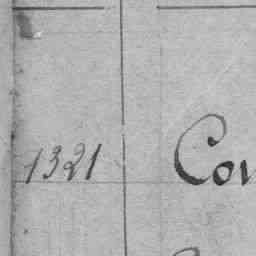 1321 Cou